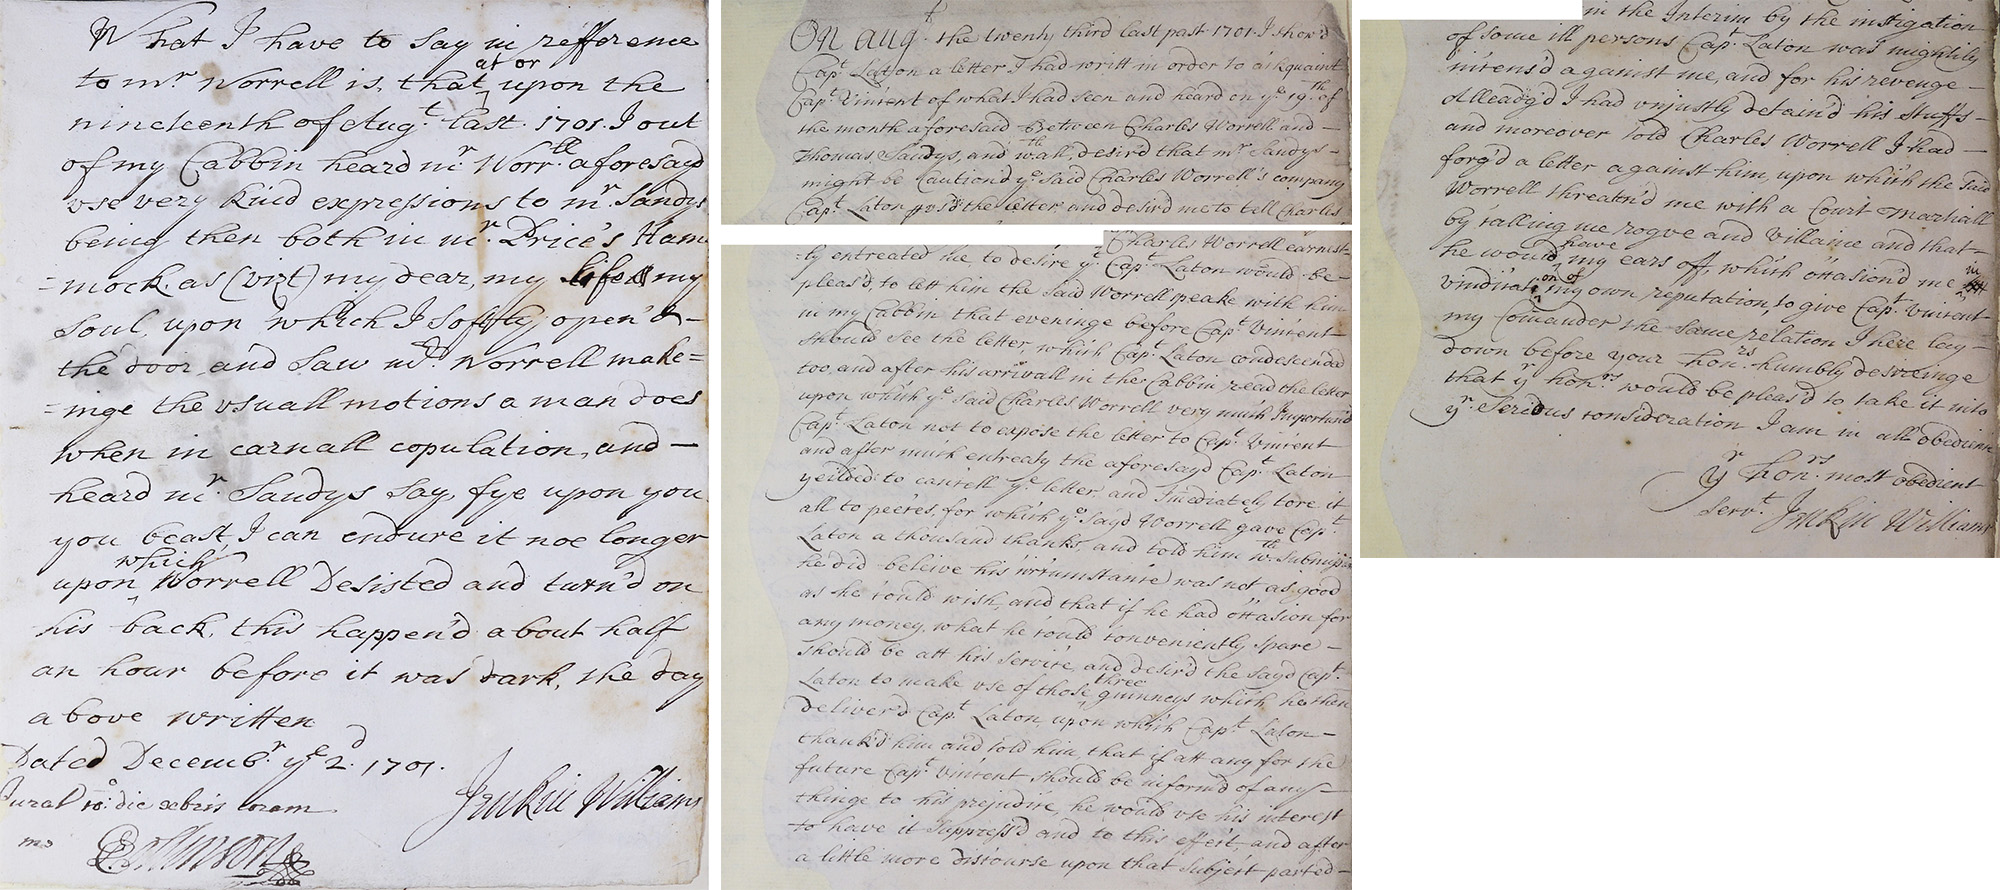 What I have to say in refference
to mr. Worrell is, that at or upon the
nineteenth of Augt. last. 1701. I out
of my Cabbin heard mr Worrll aforesayd
vse very kind expressions to mr. Sandys
being then both in mr. Price's Ham
=mock. as (vizt) my dear, my life & my
soul, upon which I softly open'd -
the door, and saw mr. Worrell make=
=inge the vsuall motions a man does
when in carnall copulation, and —
heard mr. Sandys say, fye upon you
you beast I can endure it noe longer
upon which Worrell Desisted and turn'd on
his back, this happen'd about half
an hour before it was dark, the day
above written
Dated Decembr. ye 2d. 1701.
Jenkin Williams
Jurat 10: die xbris coram
On Augt. the twenty third last past 1701. I show'd
Capt. Laton a letter I had writt in order to ackquaint
Capt. Vincent of what I had seen and heard on ye. 19th. of
the month aforesaid Between Charles Worrell and —
Thomas Sandys, and wth. all, desir'd that mr. Sandys -
might be Caution'd ye. said Charles Worrell's company
Capt. Laton the letter, and desir'd me to tell Charles
Charles Worrell earnest=
=ly entreated me to desire yt. Capt. Laton would be —
pleas'd, to lett him the said Worrell speake with him
in my Cabbin that eveninge before Capt. Vincent -
should see the letter, which Capt. Laton condescended
too, and after his arrivall in the Cabbin read the letter
upon which ye. said Charles Worrell very much Importun'd
Capt. Laton not to expose the letter to Capt. Vincent
and after much entreaty the aforesayd Capt. Laton
yeilded to cancell ye. letter, and Imediately tore it
all to peeces, for which ye. sayd Worrell gave Capt.
Laton a thousand thanks, and told him wth. submission
he did beleive his circumstance was not, as good
as he could wish, and that if he had occasion for
any money, what he could conveniently spare —
should be att his service, and desir'd the sayd Capt.
Laton to make vse of those three guinneys which he then
deliver'd Capt. Laton, upon which Capt. Laton —
thank'd him and told him, that if att any for the
future Capt. Vincent should be inform'd of any -
thinge to his prejudice, he would vse his interest
to have it suppress'd and to this effect, and after
a little more discourse upon that subject parted —
in the Interim by the instigation
of some ill persons Capt. Laton was mightily
incens'd against me, and for his revenge -
Alleadg'd I had vnjustly detain'd his stuffs -
and moreover told Charles Worrell I had —
forg'd a letter against him, upon which the said
Worrell threatn'd me with a Court Martiall
by calling me rogve and villaine and that -
he would have my ears off, which occasion'd me in
vindication of my own reputation, to give Capt. Vincent
my Comander the same relation I here lay -
down before your honrs. humbly desireinge
that yr honrs. would be pleas'd to take it into
yr. serious consideration I am in all obedience
yr honrs. most obedient
servt. Jenkin Williams